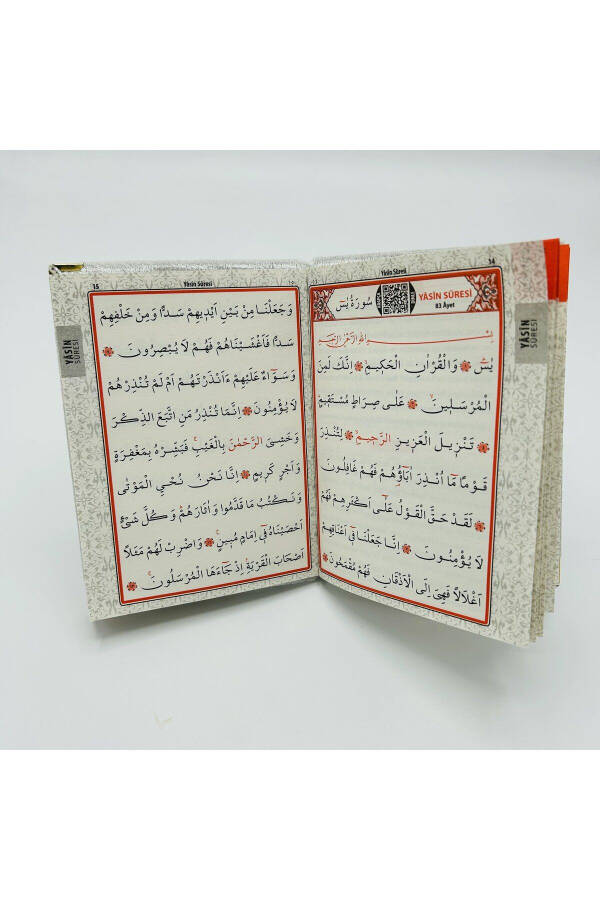 14
Yâsin Sûresi
YÂSİN SÛRESİ
83 Âyet
سُورَةُ يٰسٓ
بِسْمِ اللّٰهِ الرَّحْمٰنِ الرَّحِيمِ
يٰسٓ وَالْقُرْاٰنِ الْحَكِيمِ اِنَّكَ لَمِنَ
الْمُرْسَلِينَ عَلٰى صِرَاطٍ مُسْتَقِيمٍ
تَنْزِيلَ الْعَزِيزِ الرَّحِيمِ لِتُنْذِرَ
قَوْمًا مَٓا اُنْذِرَ اٰبَٓاؤُ۬هُمْ فَهُمْ غَافِلُونَ
لَقَدْ حَقَّ الْقَوْلُ عَلٰٓى اَكْثَرِهِمْ فَهُمْ
لَا يُؤْمِنُونَ اِنَّا جَعَلْنَا فِٓي اَعْنَاقِهِمْ
اَغْلَالًا فَهِيَ اِلَى الْاَذْقَانِ فَهُمْ مُقْمَحُونَ
YÂSİN
SÛRESİ
15
Yâsin Sûresi
وَجَعَلْنَا مِنْ بَيْنِ اَيْدِيهِمْ سَدًّا وَمِنْ خَلْفِهِمْ
سَدًّا فَاَغْشَيْنَاهُمْ فَهُمْ لَا يُبْصِرُونَ
وَسَوَٓاءٌ عَلَيْهِمْ ءَاَنْذَرْتَهُمْ اَمْ لَمْ تُنْذِرْهُمْ
لَا يُؤْمِنُونَ اِنَّمَا تُنْذِرُ مَنِ اتَّبَعَ الذِّكْرَ
وَخَشِيَ الرَّحْمٰنَ بِالْغَيْبِ فَبَشِّرْهُ بِمَغْفِرَةٍ
وَاَجْرٍ كَرِيمٍ اِنَّا نَحْنُ نُحْيِ الْمَوْتٰى
وَنَكْتُبُ مَا قَدَّمُوا وَاٰثَارَهُمْ وَكُلَّ شَيْءٍ
اَحْصَيْنَاهُ فِٓي اِمَامٍ مُبِينٍ وَاضْرِبْ لَهُمْ مَثَلًا
اَصْحَابَ الْقَرْيَةِ اِذْ جَٓاءَهَا الْمُرْسَلُونَ
YÂSİN
SÛRESİ